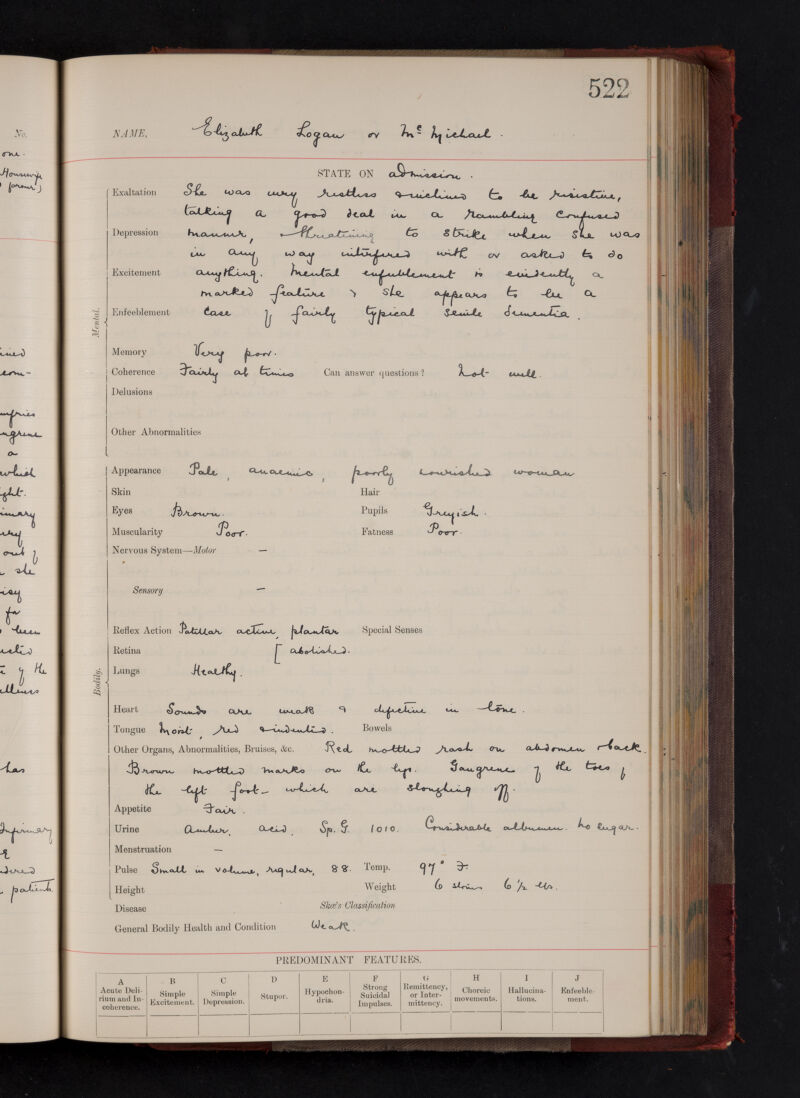 522
No.
one.
NAME, Elizabeth Logan or McMichael.
STATE ON admission.
Exaltation She was very restless & inclined to be resistive,
talking a good deal in a rambling confused
Depression manner, threatening to strike when she was
in any way interfered with or asked to do
Excitement anything. Mental enfeeblement is evidently a
marked feature & she appears to be a
Enfeeblement case of fairly typical senile dementia.
Mental.
Memory Very poor.
Coherence Fairly at times Can answer questions? Not well.
Delusions
Other Abnormalities
Appearance Pale, anaemic, poorly nourished woman
Skin Hair
Eyes Brown. Pupils Greyish.
Muscularity Poor. Fatness Poor.
Nervous System—Motor —
Sensory —
Reflex Action Patellar active, plantar Special Senses
Retina [abolished.
Bodily.
Lungs Healthy.
Heart Sounds are weak & defective in tone.
Tongue Moist, red & indented. Bowels
Other Organs, Abnormalities, Bruises, &c. Red mottled rash on abdomen & back.
Brown mottled marks on the legs. Gangrene of the toes of
the left foot – which are sloughing off.
Appetite Fair.
Urine Amber, acid, Sp. G. 1010. Considerable albumen. No sugar.
Menstruation —
Pulse Small in volume, regular, 88. Temp. 97° F.
Height Weight 6 stones 6 1/2 lbs.
Disease Skae's Classification
General Bodily Health and Condition Weak.
PREDOMINANT FEATURES.
A Acute Delirium and Incoherence.
B Simple Excitement.
C Simple Depression.
D Stupor.
E Hypochondria.
F Strong Suicidal Impulses.
G Remittency, or Intermittency.
H Choreic movements.
I Hallucinations.
J Enfeeblement.